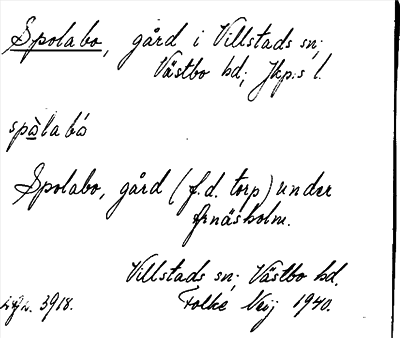 Spolabo, gård i Villstads sn;
Västbo hd; Jkp:s l.
spòlabó
Spolabo, gård (f.d. torp) under
Arnäsholm.
Villstads sn; Västbo hd.
3918. Folke Neij 1940.